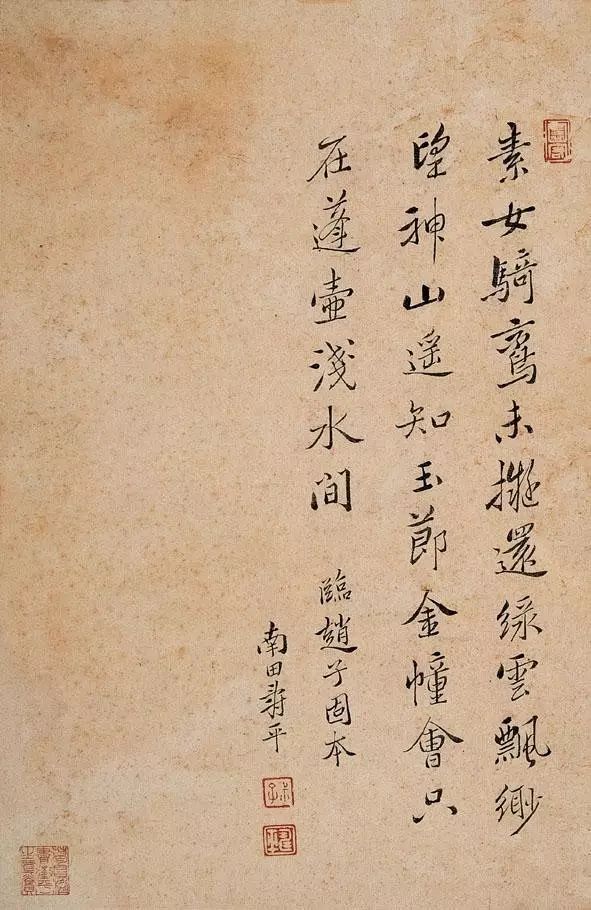 素女騎鸞未擬還綠雲飄渺
望神山遥知玉節金幢會只
在蓬壺淺水間
臨趙子固本
南田壽平